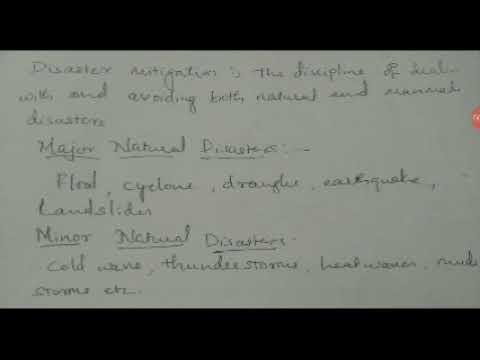 Disaster mitigation is The discipline of deal-
with and avoiding both natural and manmade
disasters
Major Natural Disasters:-
Flood, cyclone, draught, earthquake,
Landslides
Minor Natural Disasters.
Cold wave, thunderstorms, heatwaves, mud
storms etc.